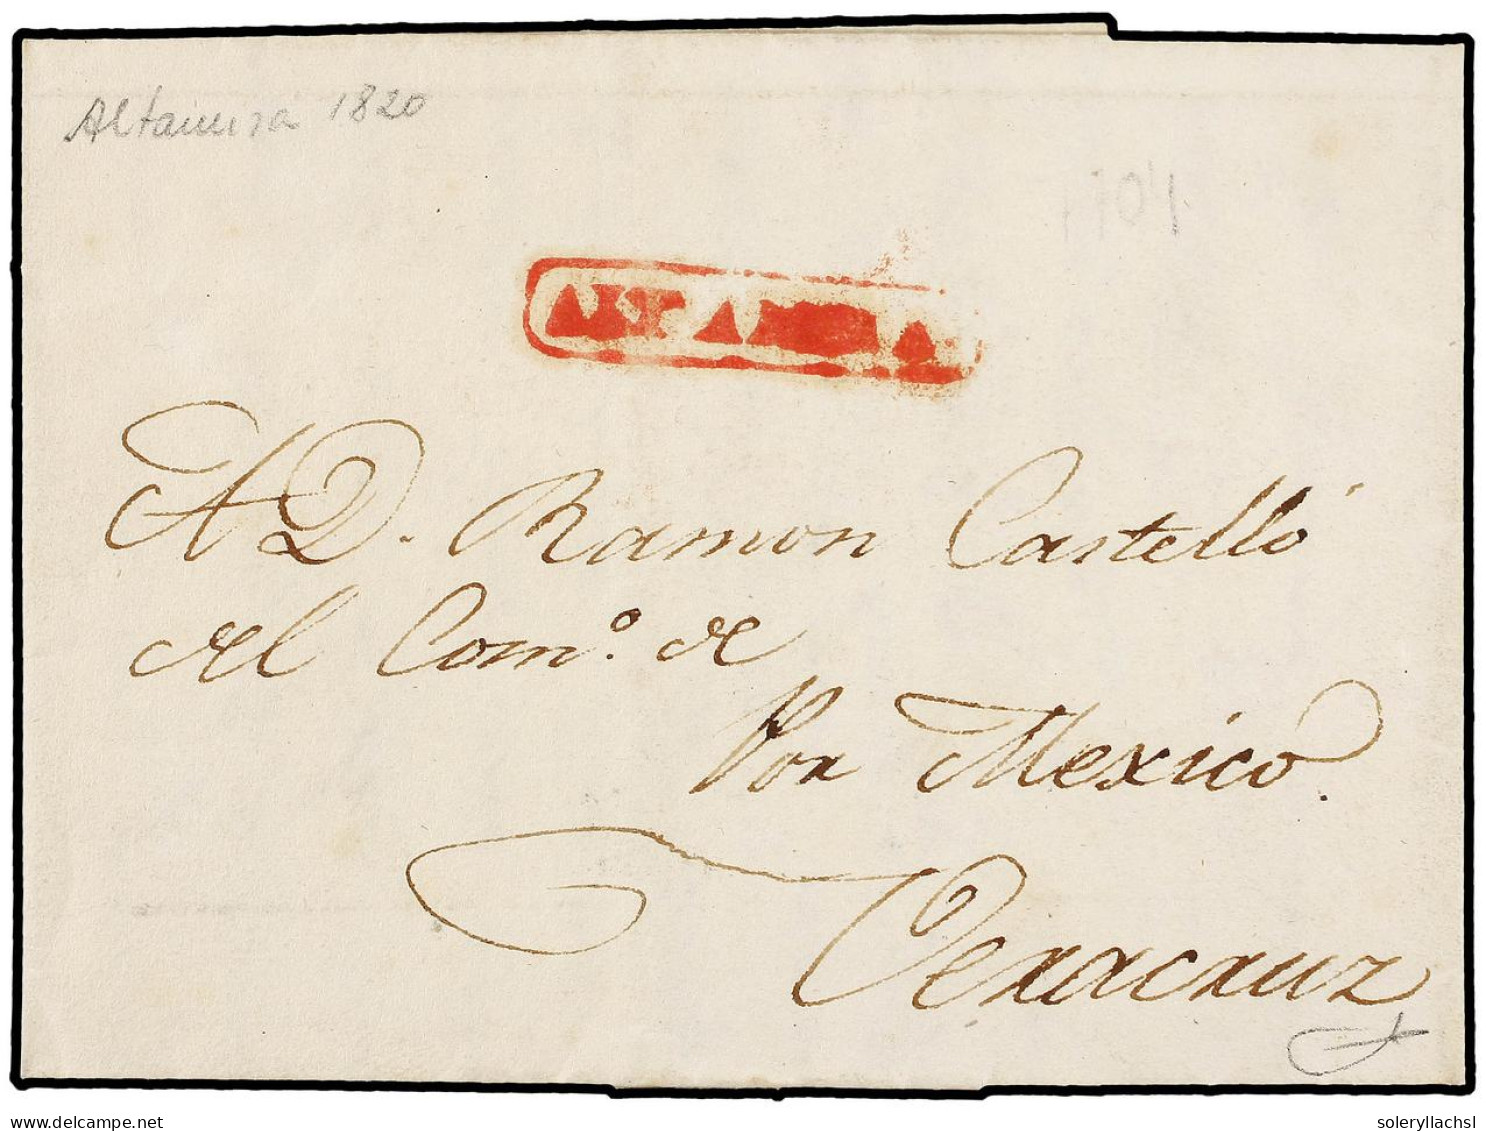 Altamira 1820
1104
ALTAMIRA
A D. Ramon Castelló
del Com.º de
Por Mexico.
Veracruz
www.delcampe.net
soleryllachsl